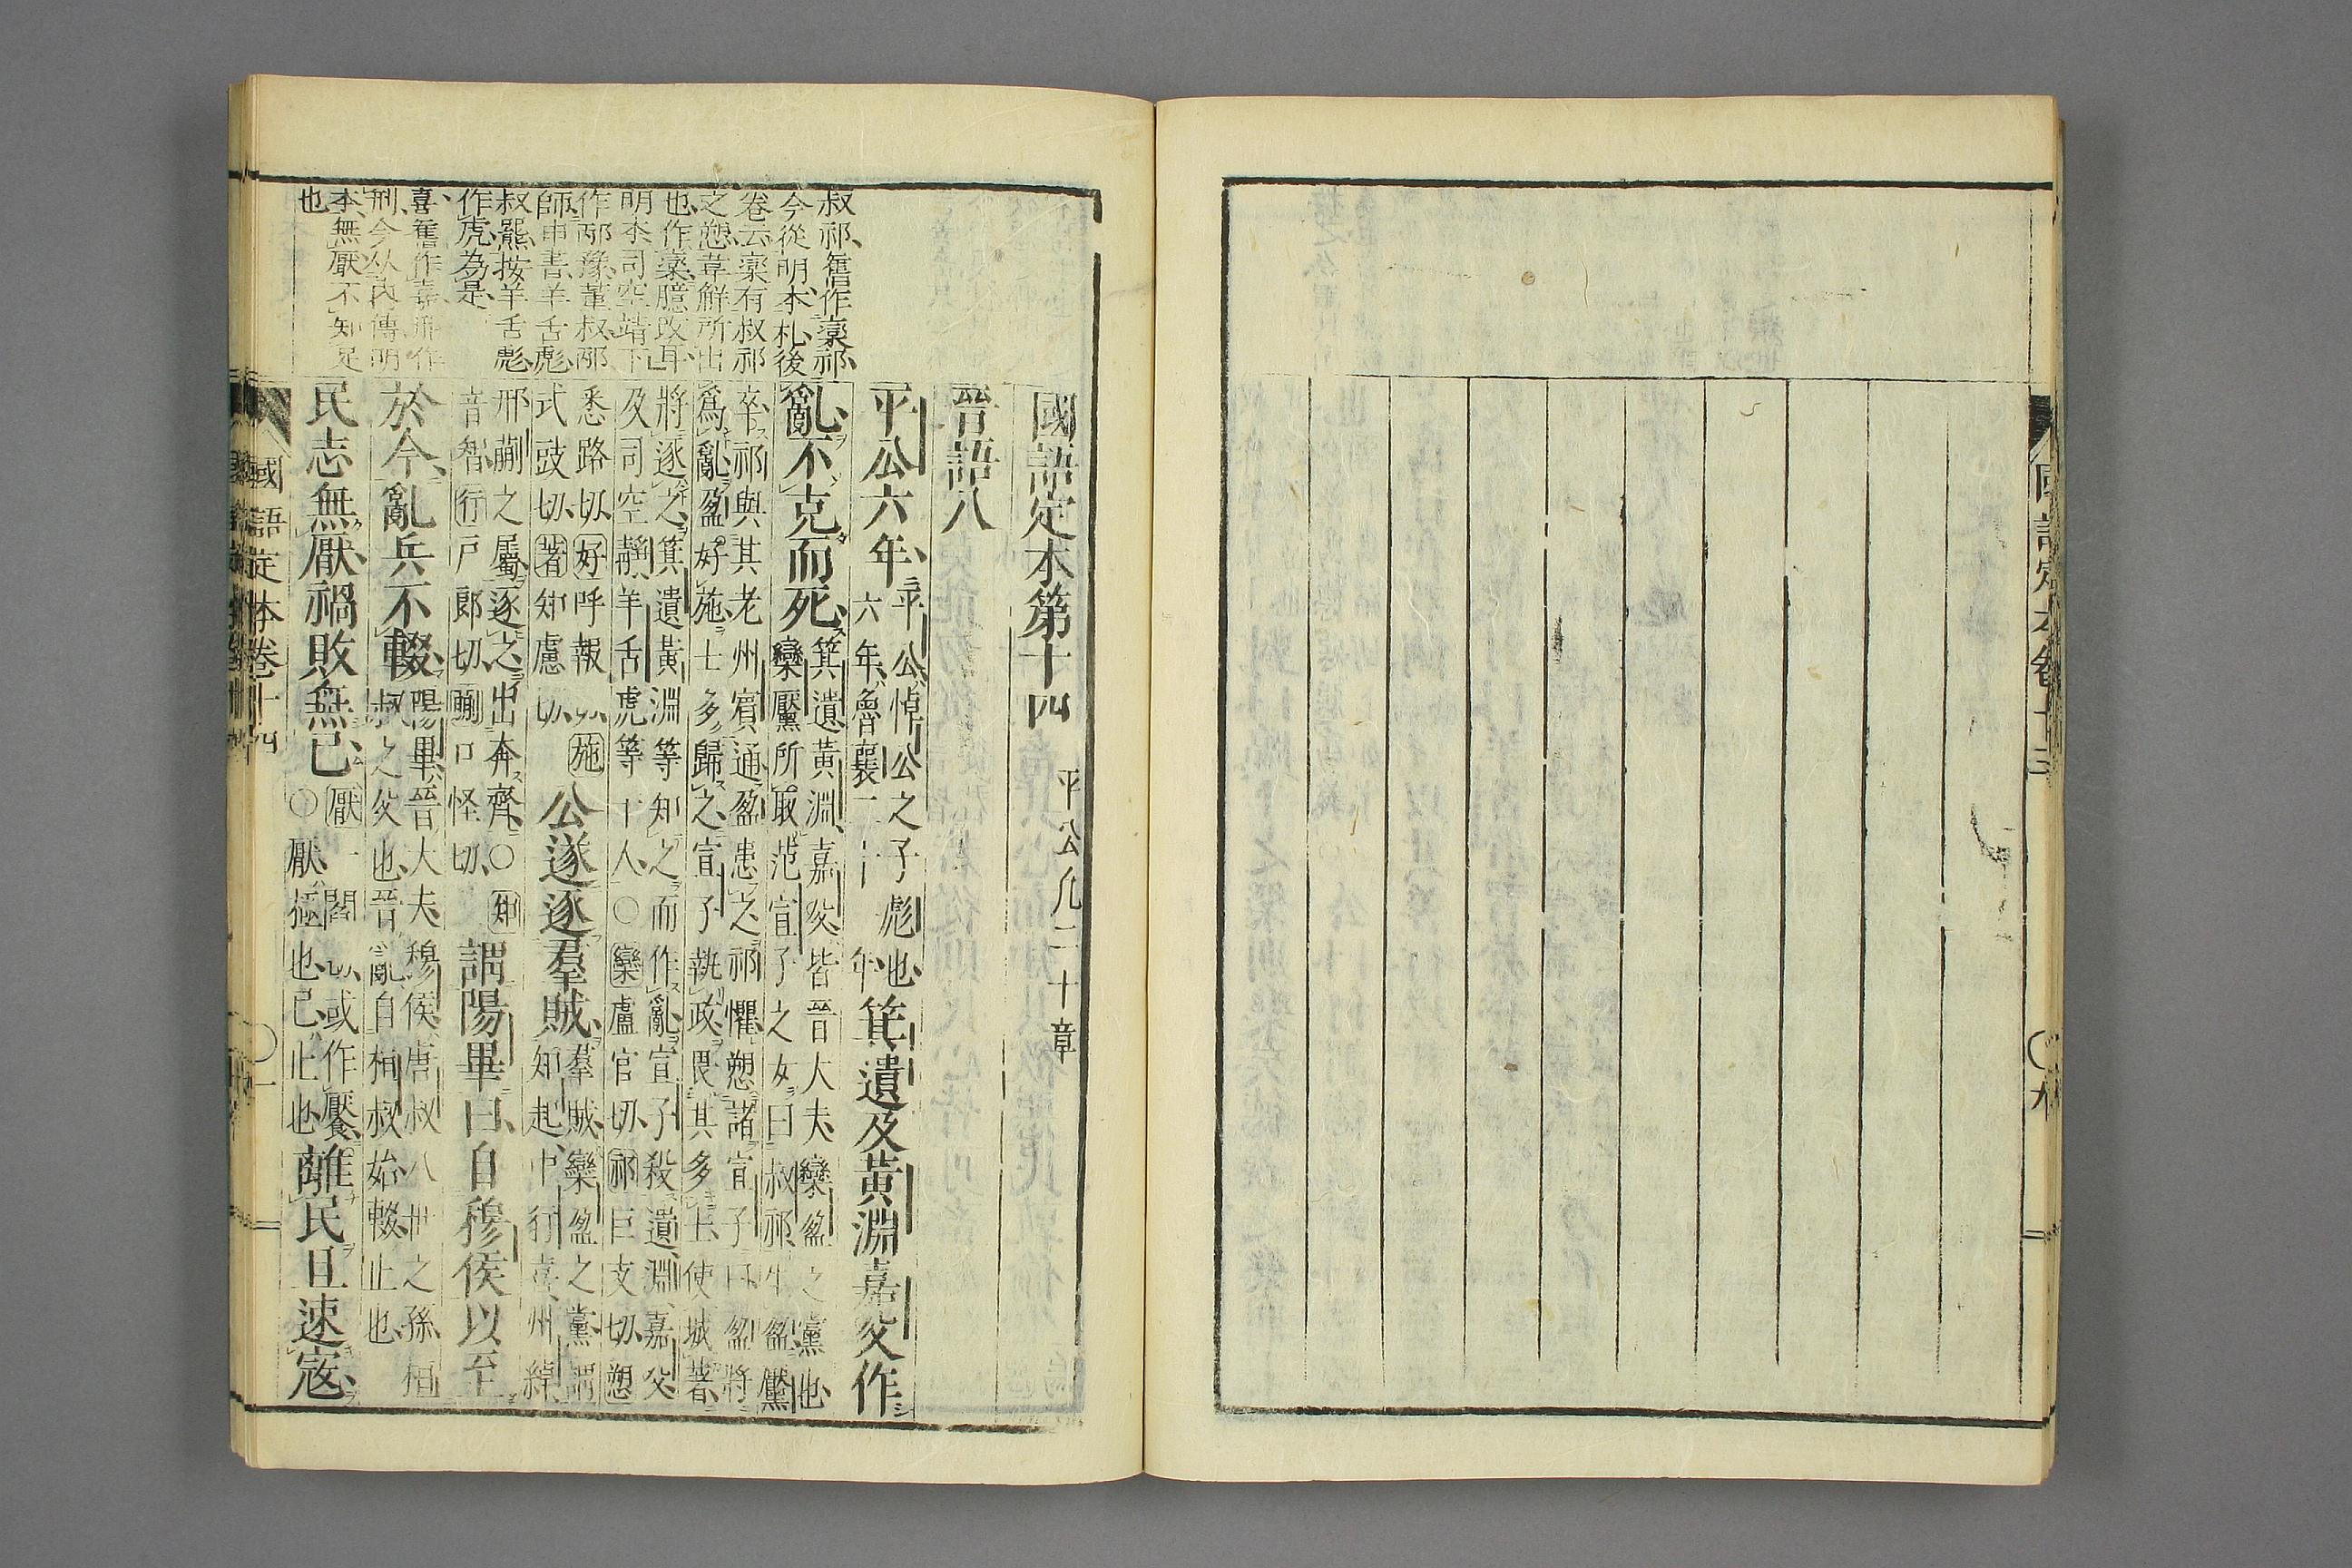 國語定本卷十三
九
國語定本第十四
平公凡二十章
晉語八
平公六年
平公悼公之子彪也
六年魯襄二十一年
箕遺及黃淵嘉父作
亂不克而死
箕遺黃淵嘉父皆晉大夫欒盈之黨也
欒黶所取范宣子之女曰叔祁生盈黶
卒祁與其老州賓通盈患之祁懼愬諸宣子曰盈將
爲亂盈好施士多歸之宣子執政畏其多士使城著
將逐之箕遺黃淵等知之而作亂宣子殺遺淵嘉父
及司空靜羊舌虎等十人○欒盧官切祁巨支切愬
悉路切好呼報切施
式豉切著知慮切
公遂逐羣賊
羣賊欒盈之黨謂
知起中行喜州綽
邢蒯之屬逐之出奔齊○知
音智行戸郎切蒯口怪切
謂陽畢曰自穆侯以至
於今亂兵不輟
陽畢晉大夫穆侯唐叔八世之孫桓
叔之父也晉亂自桓叔始輟止也
民志無厭禍敗無已
厭一閻切或作饜
○厭極也已止也
離民且速寇
叔祁舊作欒祁
今從明本札後
卷云欒有叔祁
之愬韋解所出
也作欒臆改耳
明本司空靖下
作邴豫董叔邴
師申書羊舌彪
叔羆按羊舌彪
作虎為是
喜舊作嘉邢作
刑今从內傳明
本無厭不知足
也
國語定本卷十四
一